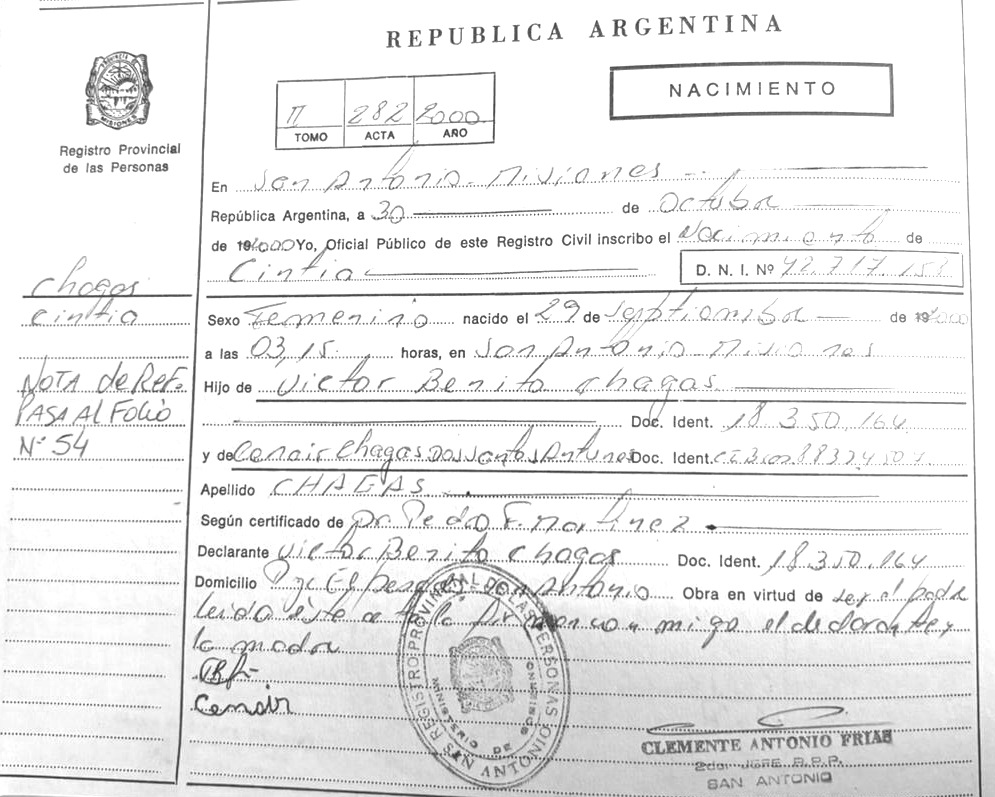 REPUBLICA ARGENTINA
NACIMIENTO
II 282 2000
TOMO ACTA AÑO
PROVINCIA DE MISIONES
Registro Provincial
de las Personas
En San Antonio - Misiones
República Argentina, a 30 de Octubre
de 192000 Yo, Oficial Público de este Registro Civil inscribo el Nacimiento de
Cintia D. N. I. Nº 42.717.153
Chagas
Cintia
Sexo Femenino nacido el 29 de Septiembre de 192000
a las 03,15 horas, en San Antonio Misiones
NOTA de REF.
PASA Al Folio
Nº 54
Hijo de Victor Benito Chagas
Doc. Ident. 18.350.164
y de Cenair Chagas Dos Santos Antunes Doc. Ident.
Apellido CHAGAS
Según certificado de Dr. Pedro F. Martinez
Declarante Victor Benito Chagas Doc. Ident. 18.350.164
Domicilio Antonio Obra en virtud de ser el padre
leida este acta la firman conmigo el declarante y
la madre
Cenair
REGISTRO PROVINCIAL DE LAS PERSONAS
SAN ANTONIO
CLEMENTE ANTONIO FRIAS
2do. JEFE R.P.P.
SAN ANTONIO